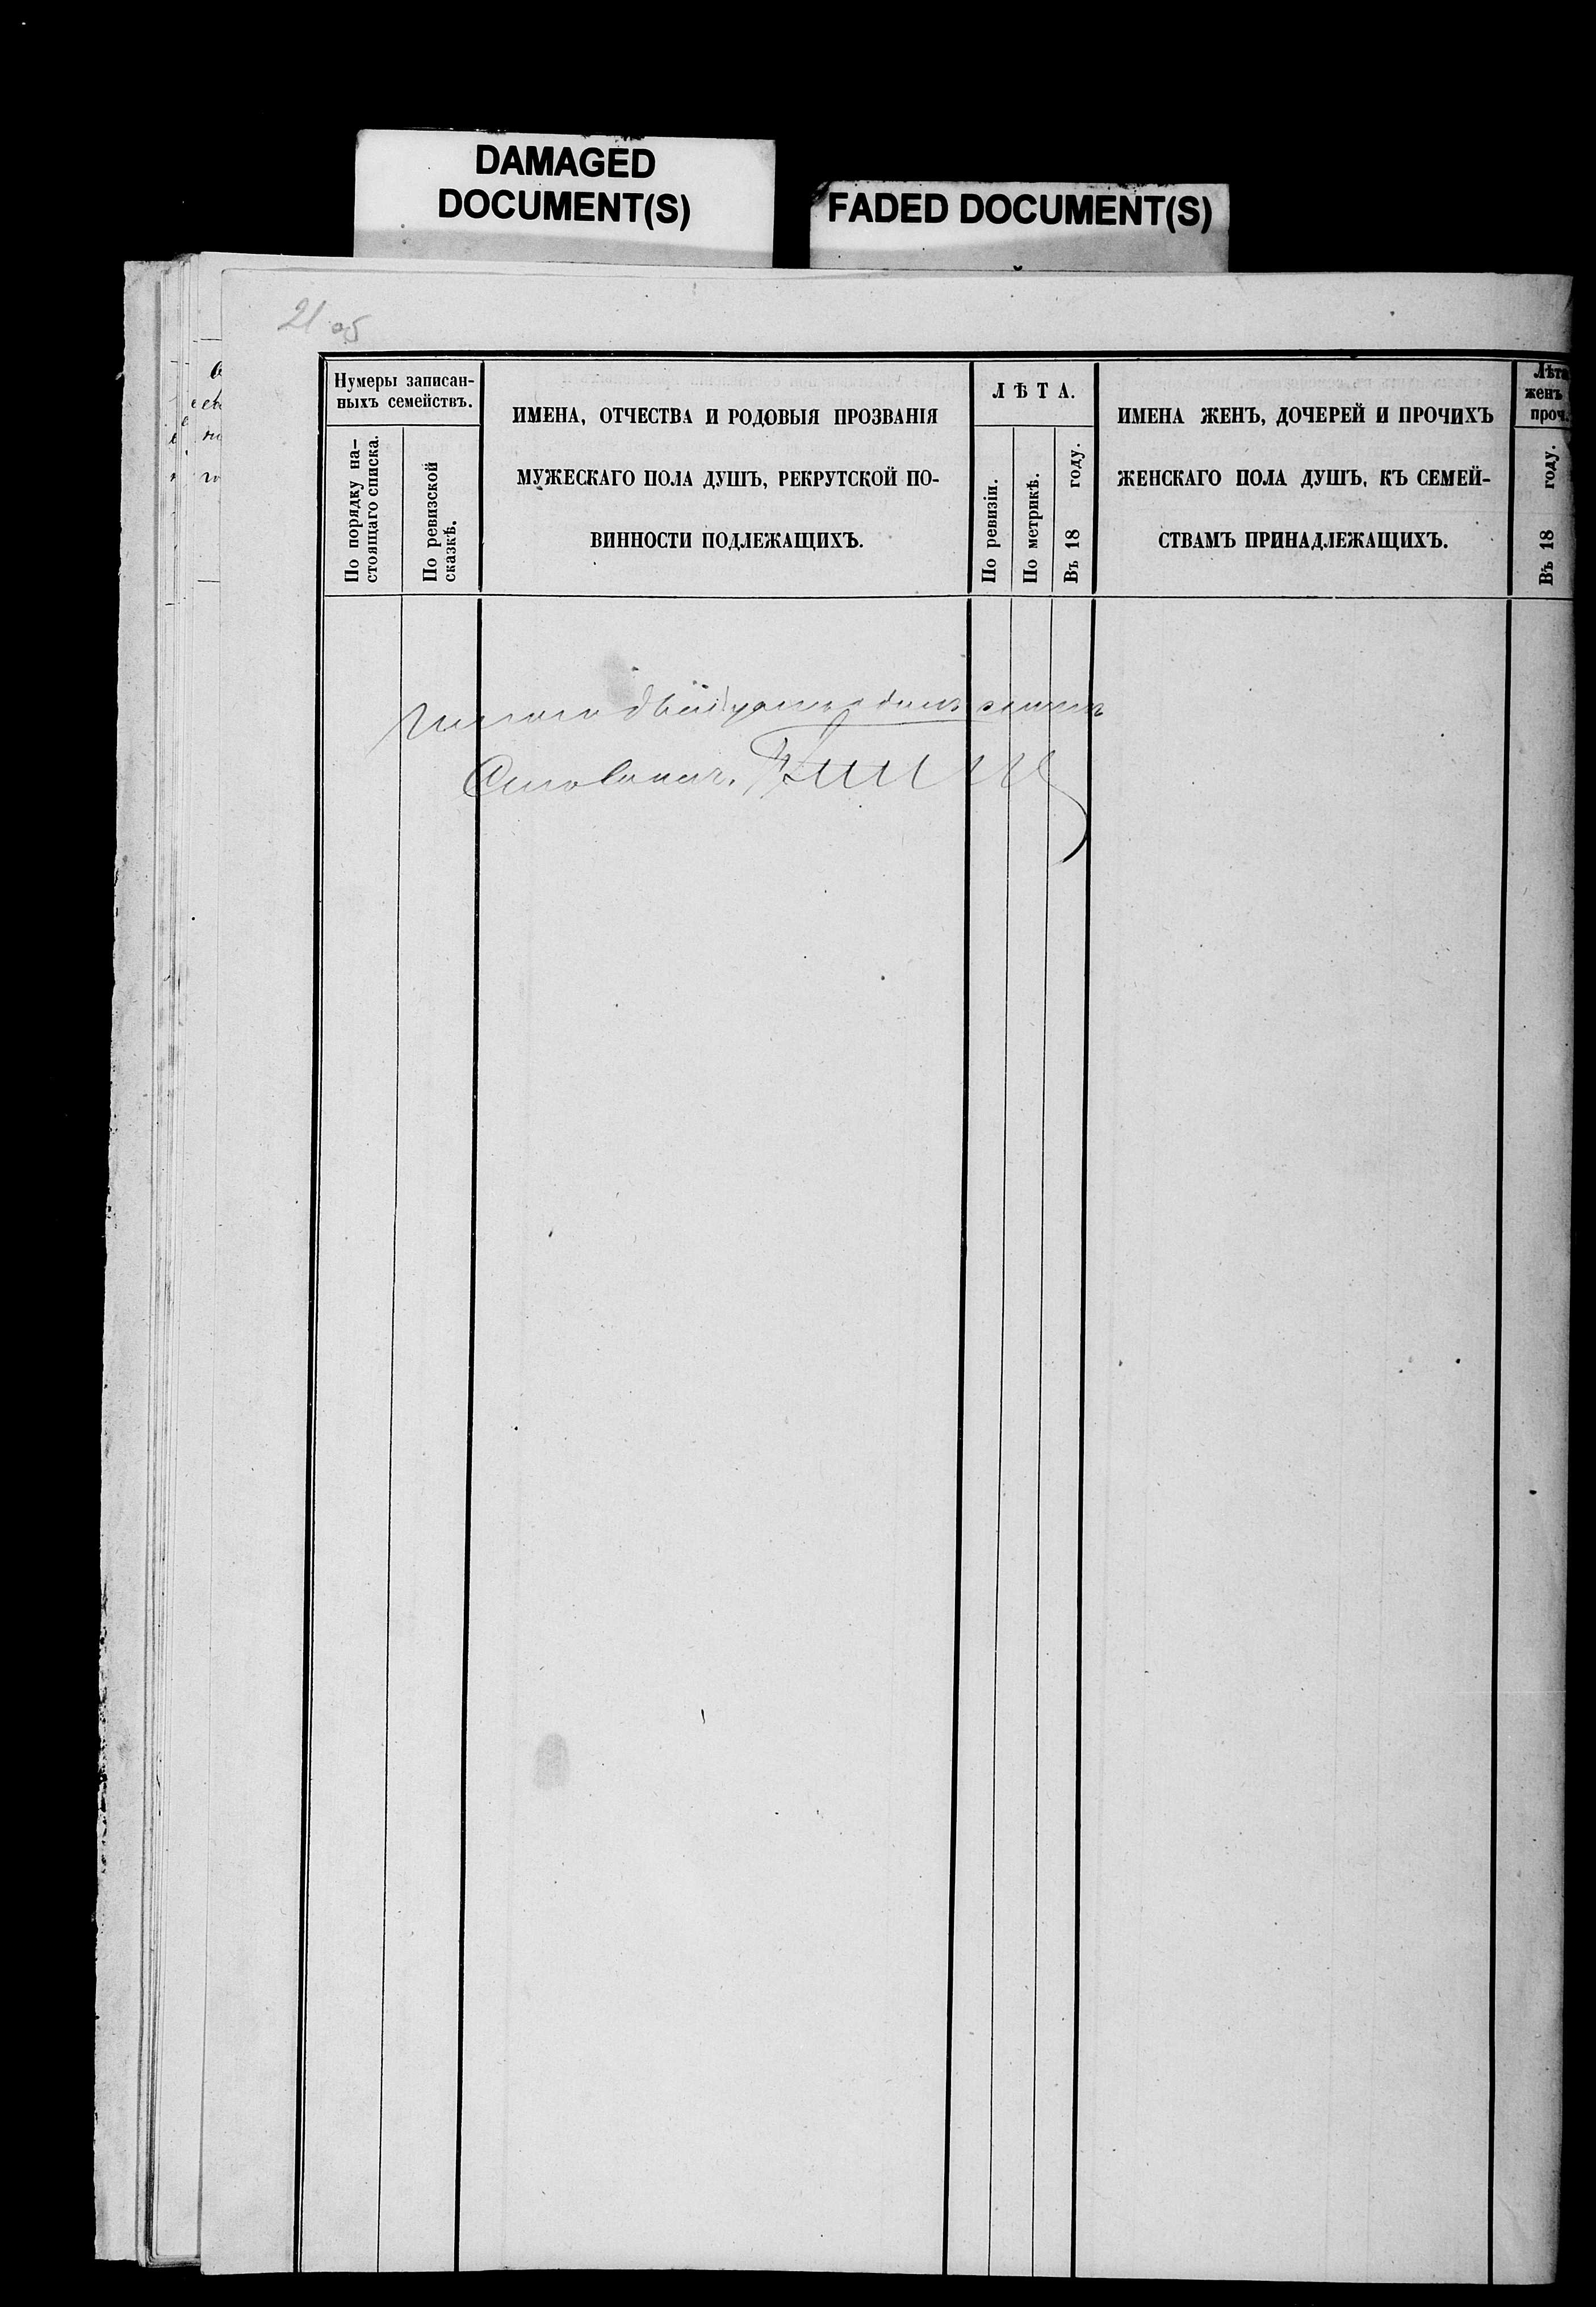 DAMAGED
DOCUMENT(S)
FADED DOCUMENT(S)
21 об
Нумеры записан-
ныхъ семействъ.
По порядку на-
стоящаго списка.
По ревизской
сказкѣ.
ИМЕНА, ОТЧЕСТВА И РОДОВЫЯ ПРОЗВАНІЯ
МУЖЕСКАГО ПОЛА ДУШЪ, РЕКРУТСКОЙ ПО-
ВИННОСТИ ПОДЛЕЖАЩИХЪ.
ЛѢТА.
По ревизіи.
По метрикѣ.
Въ 18 году.
ИМЕНА ЖЕНЪ, ДОЧЕРЕЙ И ПРОЧИХЪ
ЖЕНСКАГО ПОЛА ДУШЪ, КЪ СЕМЕЙ-
СТВАМЪ ПРИНАДЛЕЖАЩИХЪ.
Лѣта
женъ
проч.
Въ 18 году.
двадцать одинъ